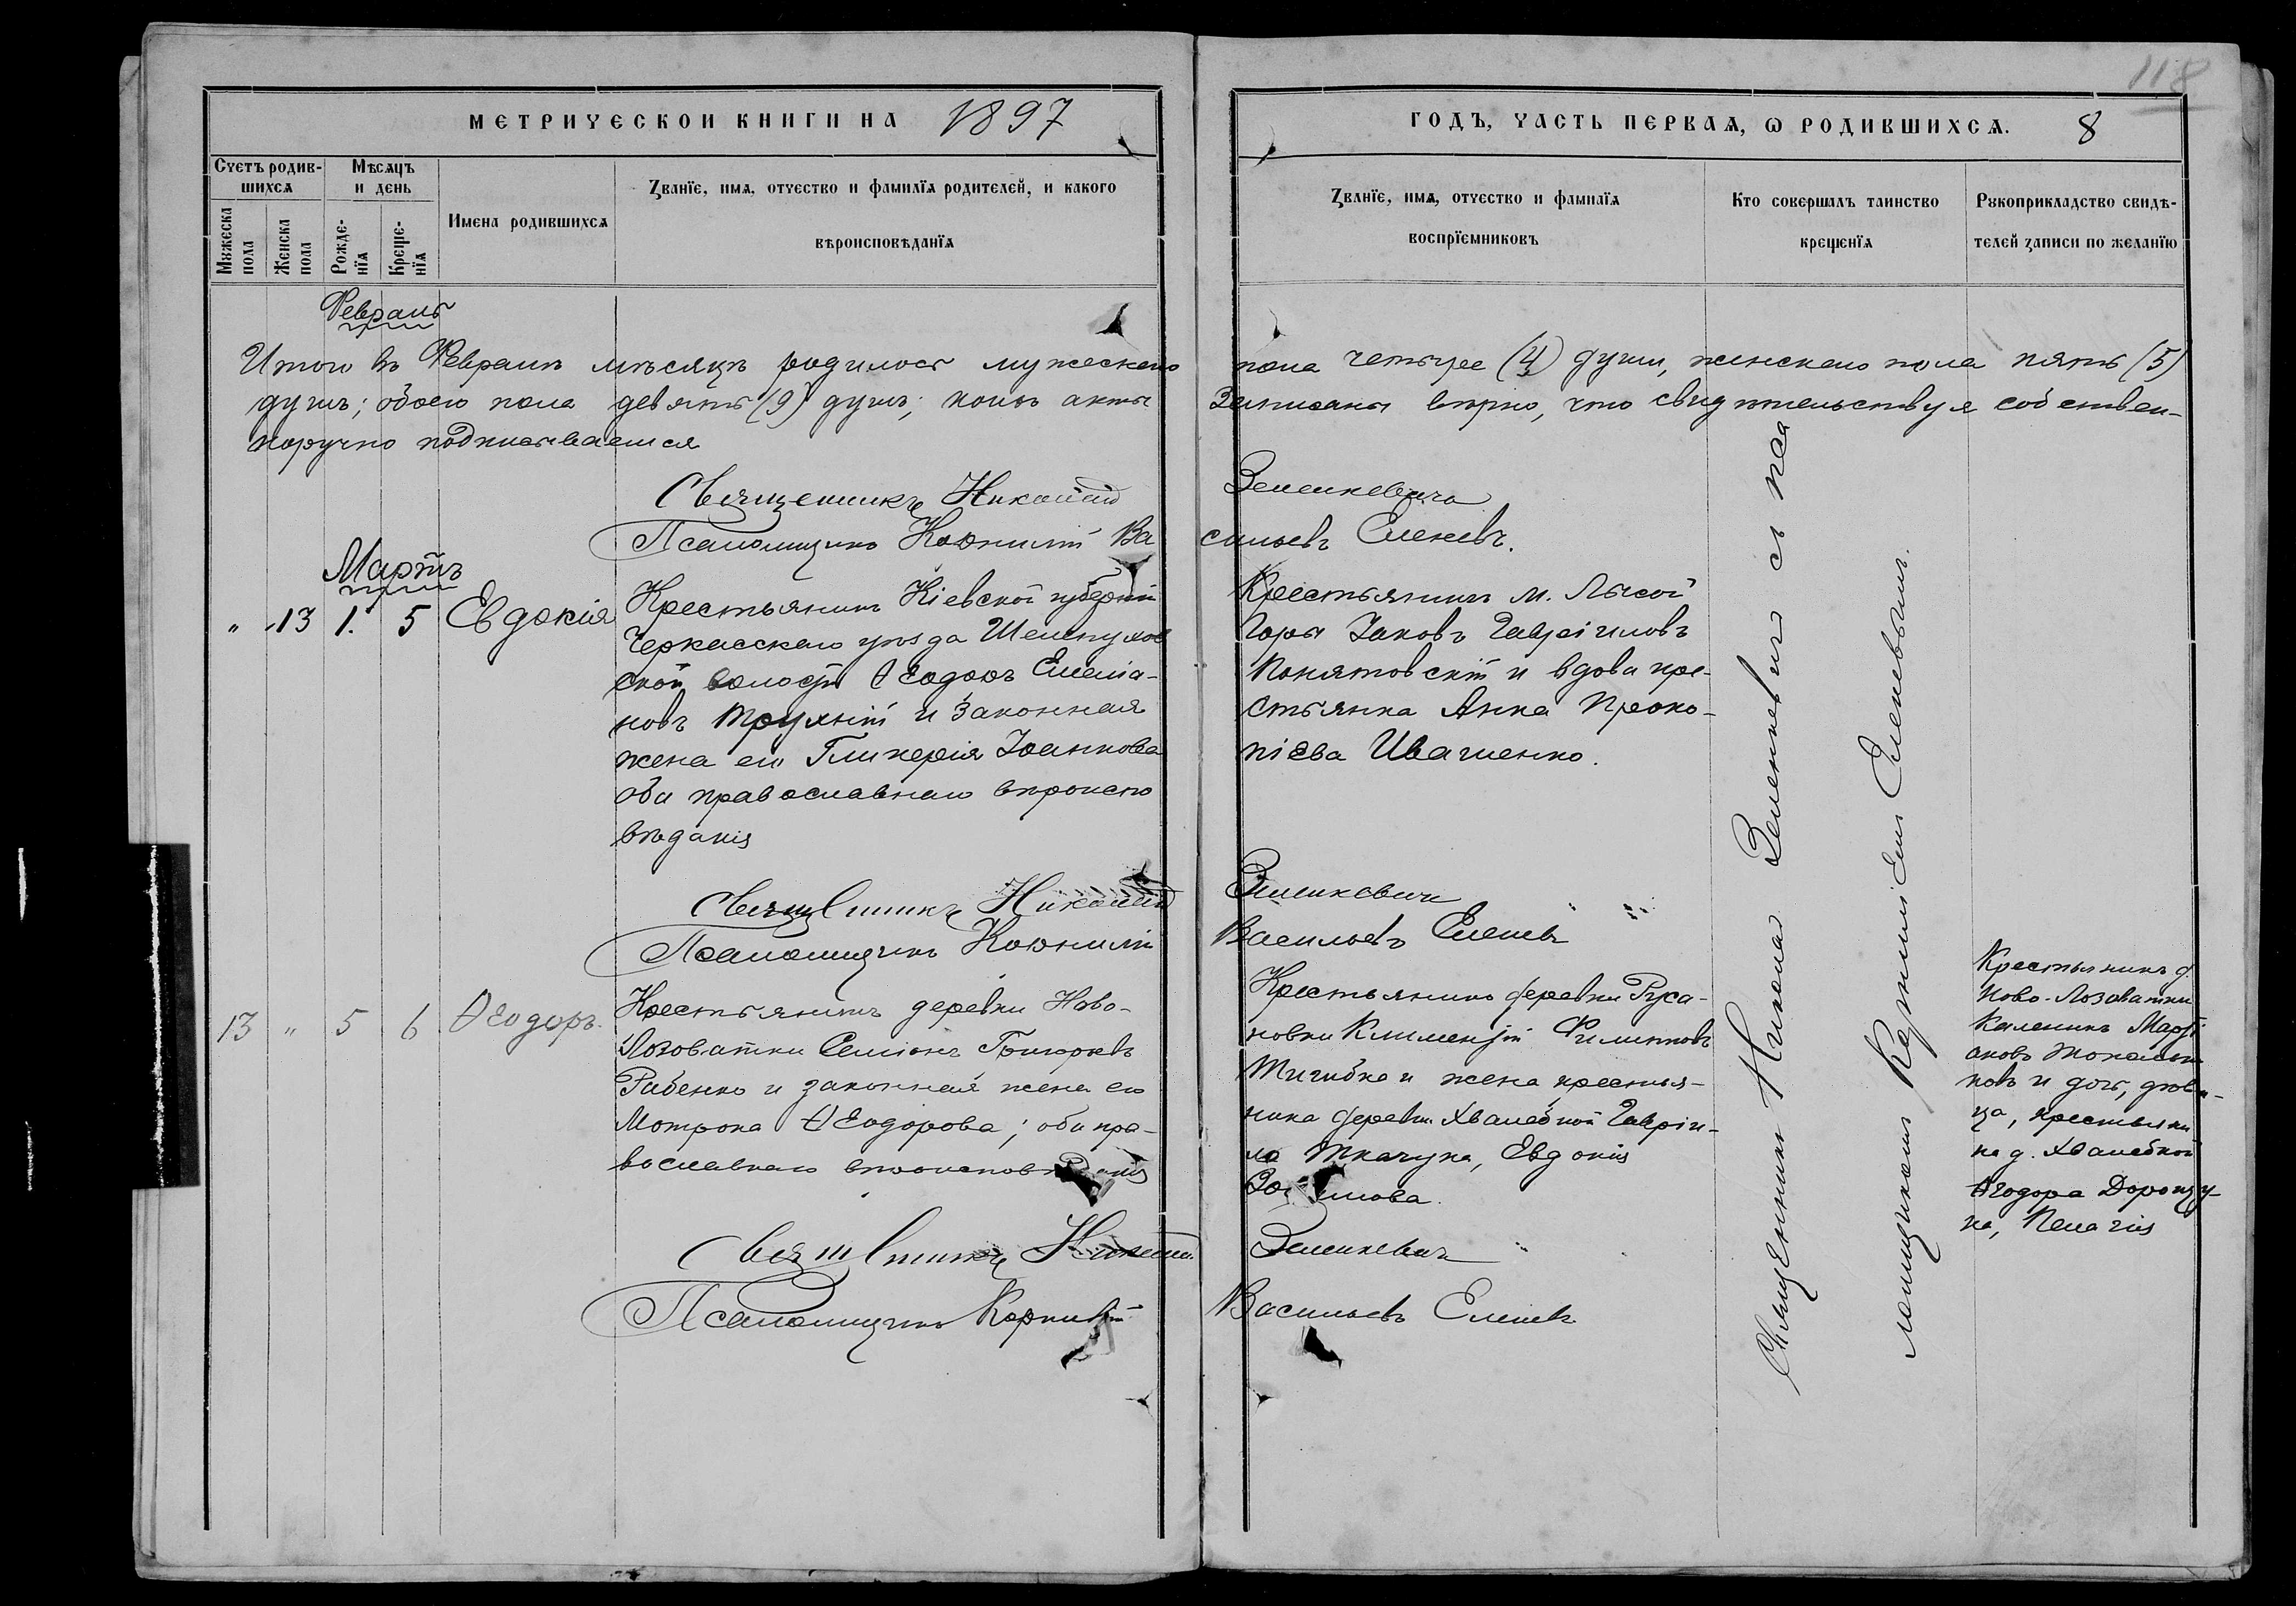 118
МЕТРИЧЕСКОЙ КНИГИ НА 1897
ГОДЪ, ЧАСТЬ ПЕРВАѦ, Ѡ РОДИВШИХСѦ. 8
Счетъ родив-
шихсѧ
Мꙋжеска
пола
Женска
пола
Мѣсѧцъ
и день
Рожде-
нїѧ
Креще-
нїѧ
Имена родившихсѧ
Званїе, имѧ, отчество и фамилїѧ родителей, и какого
вѣроисповѣданїѧ
Званїе, имѧ, отчество и фамилїѧ
воспрїемниковъ
Кто совершалъ таинство
крещенїѧ
Рꙋкоприкладство свидѣ-
телей записи по желанїю
Февраль
Итого въ Февралѣ мѣсяцѣ родилось мужескаго
пола четыре (4) души, женскаго пола пять (5)
душъ; обоего пола девять (9) душъ; коихъ акты
Записаны вѣрно, что свидѣтельствуя собствен-
норучно подписываемся
Священникъ Николай
Зеленкевичъ
Псаломщикъ Корнилій Ва
сильевъ Еленевъ.
Мартъ
" 13 1. 5 Евдокія
Крестьянинъ Кіевской губерніи
Черкасскаго уѣзда Шелепухов
ской волости Ѳеодоръ Емелiа-
новъ Трухній и законная
жена его Гликерія Іоаннова
оба православнаго вѣроиспо
вѣданія
Крестьянинъ м. Лысой
Горы Іаковъ Гавріиловъ
Понятовскій и вдова кре-
стьянка Анна Проко-
піева Ивашенко.
Священникъ Николай
Зеленкевичъ
Псаломщикъ Корнилій
Васильевъ Еленевъ
13 " 5 6 Ѳеодоръ.
Крестьянинъ деревни Ново-
Лозоватки Семіонъ Григорьевъ
Рабенко и законная жена его
Мотрона Ѳеодорова; оба пра-
вославнаго вѣроисповѣданія
Крестьянинъ деревни Руса-
новки Климентій Филипповъ
Тигибка и жена крестья-
нина деревни Хвалебной Гавріи-
ла Ткачука, Евдокія
Крестьянинъ д.
Ново-Лозоватки
Каленикъ Марті
ановъ
и дочь, дѣви-
ца, крестьяни
на д. Хвалебной
Ѳеодора Доронцу-
ка, Пелагія
Священникъ Николай
Зеленкевичъ
Псаломщикъ Корнилій
Васильевъ Еленевъ
Священникъ Николай Зеленкевичъ съ пса
ломщикомъ Корниліемъ Еленевымъ.